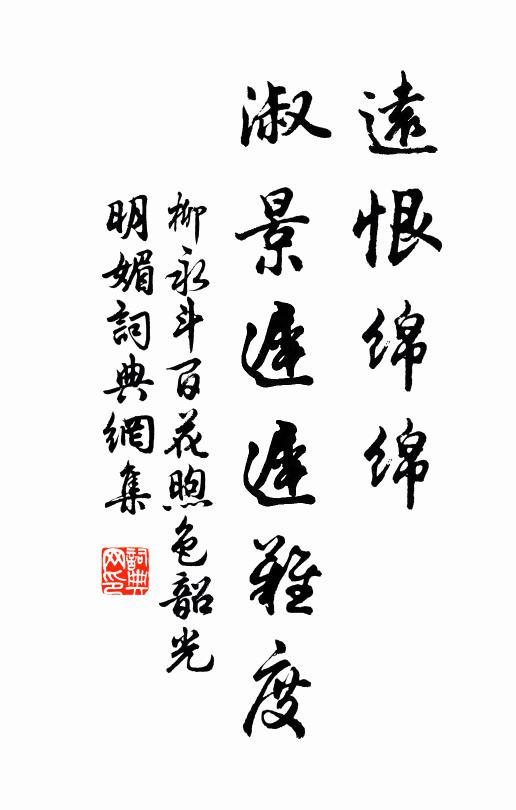 遠恨綿綿
淑景遲遲難度
柳永斗百花煦色韶光
明媚詞典網集
詞典
网印